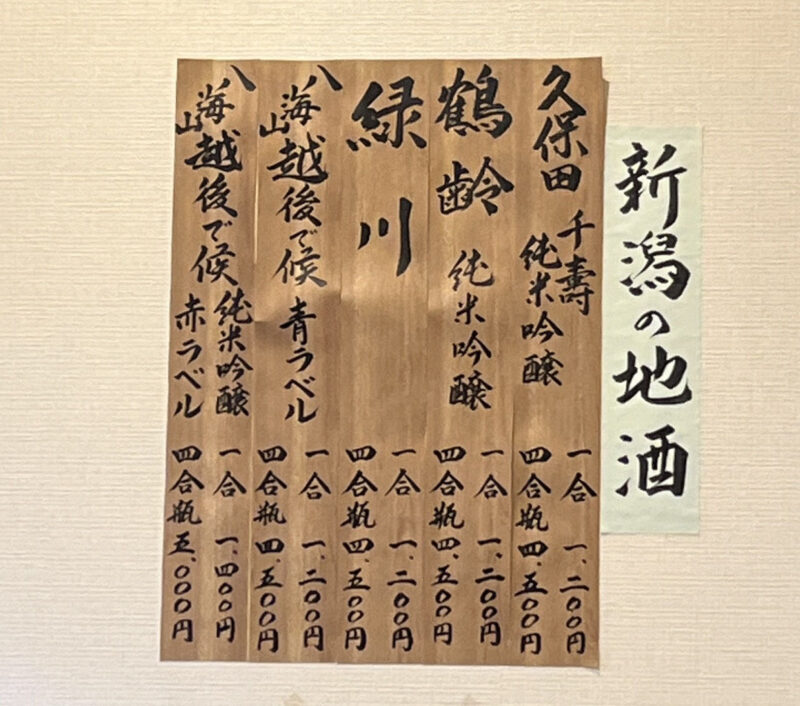 新潟の地酒
久保田 千壽
純米吟醸
一合 一、二〇〇円
四合瓶 四、五〇〇円
鶴齢 純米吟醸
一合 一、二〇〇円
四合瓶 四、五〇〇円
緑川
一合 一、二〇〇円
四合瓶 四、五〇〇円
八海山 越後で候 青ラベル
一合 一、二〇〇円
四合瓶 四、五〇〇円
八海山 越後で候 純米吟醸
赤ラベル
一合 一、四〇〇円
四合瓶 五、〇〇〇円